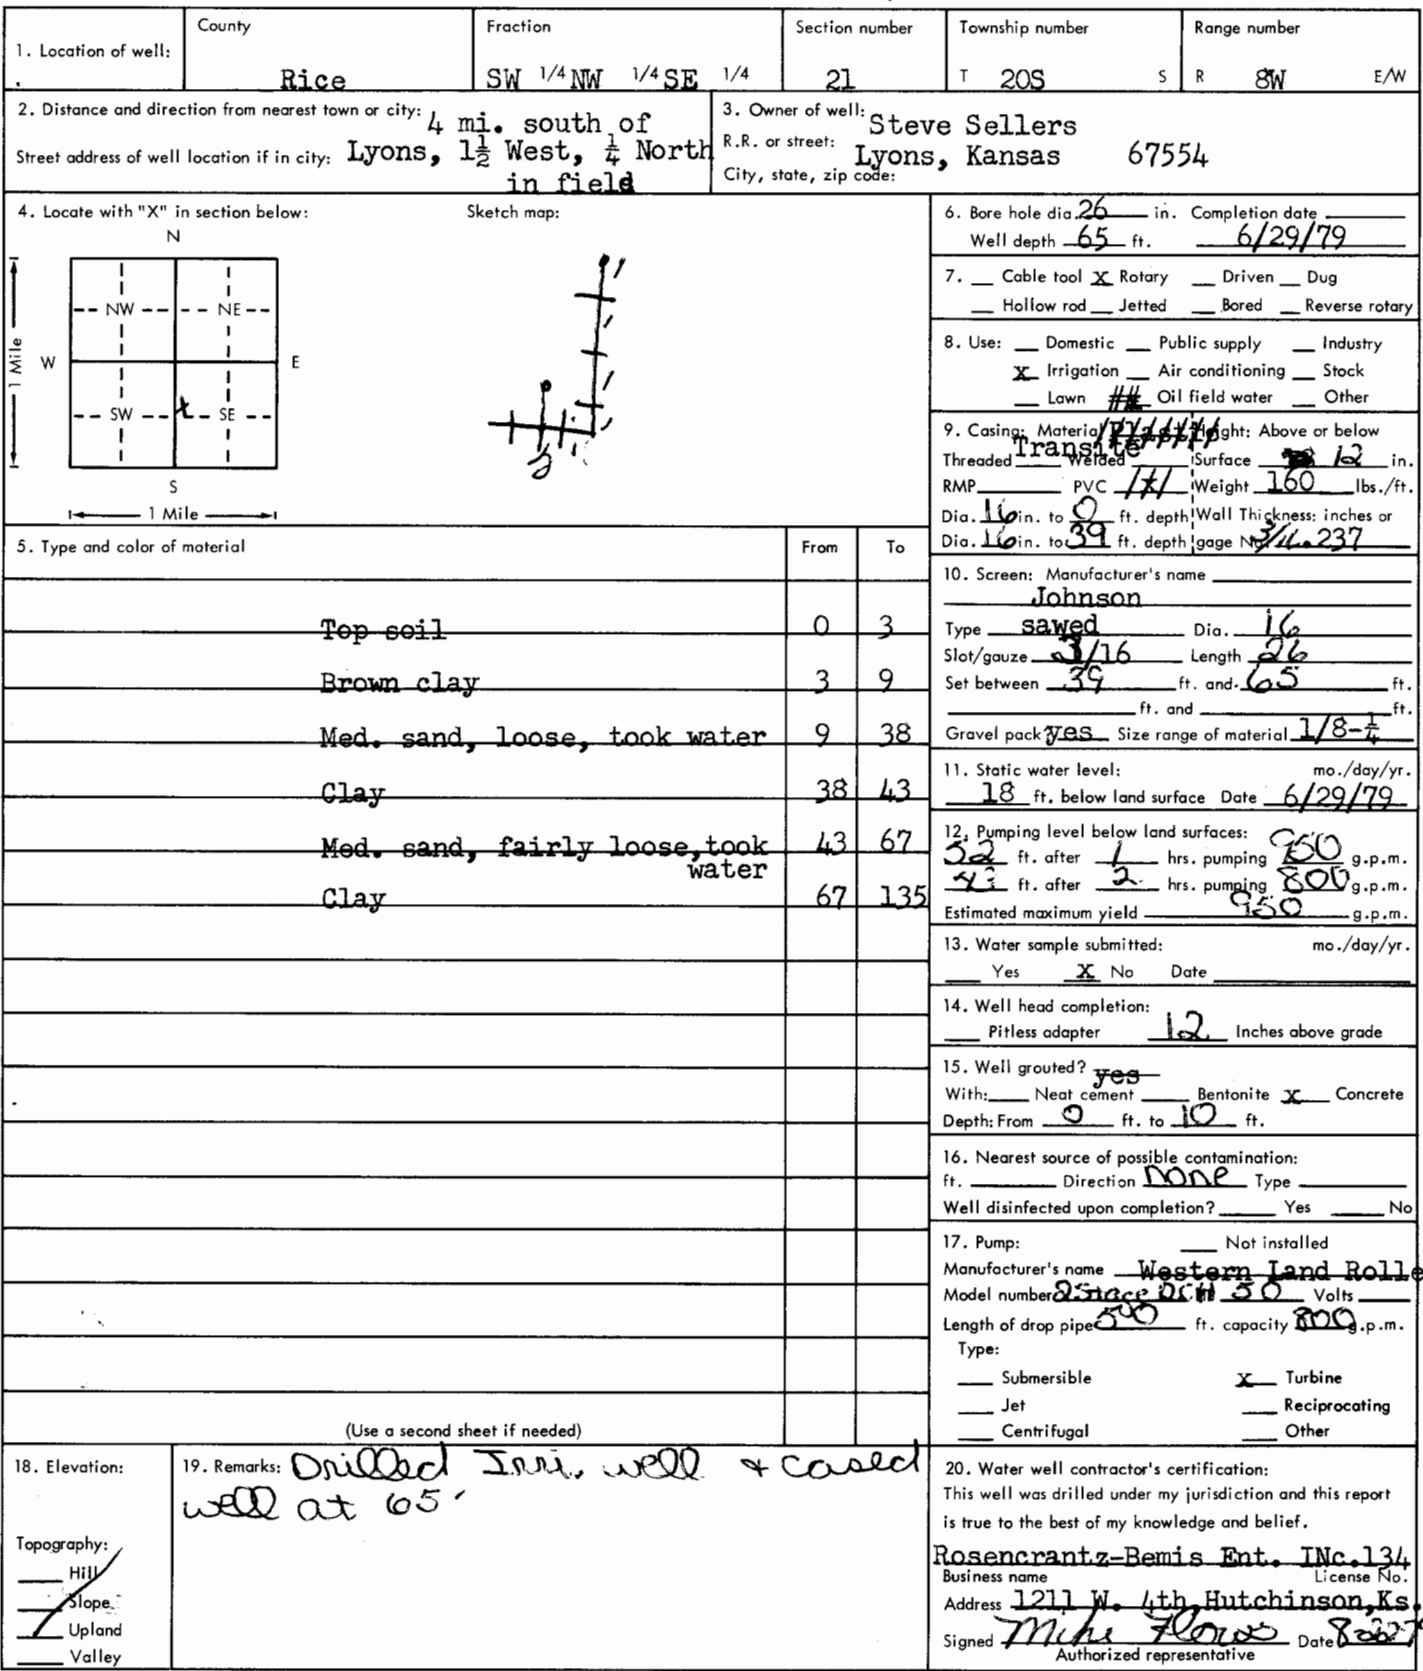 1. Location of well:
County
Rice
Fraction
SW 1/4 NW 1/4 SE 1/4
Section number
21
Township number
T 20S S
Range number
R 8W E/W
2. Distance and direction from nearest town or city: 4 mi. south of
Street address of well location if in city: Lyons, 1½ West, ¼ North
in field
3. Owner of well: Steve Sellers
R.R. or street:
Lyons, Kansas 67554
City, state, zip code:
4. Locate with "X" in section below:
Sketch map:
N
NW NE
W E
1 Mile
SW X SE
S
1 Mile
5. Type and color of material From To
Top soil 0 3
Brown clay 3 9
Med. sand, loose, took water 9 38
Clay 38 43
Med. sand, fairly loose, took 43 67
water
Clay 67 135
(Use a second sheet if needed)
6. Bore hole dia. 26 in. Completion date
Well depth 65 ft. 6/29/79
7. Cable tool X Rotary Driven Dug
Hollow rod Jetted Bored Reverse rotary
8. Use: Domestic Public supply Industry
X Irrigation Air conditioning Stock
Lawn Oil field water Other
9. Casing: Material Plastic Height: Above or below
Transite
Threaded Welded Surface 12 in.
RMP PVC X Weight 160 lbs./ft.
Dia. 16 in. to 0 ft. depth Wall Thickness: inches or
Dia. 16 in. to 39 ft. depth gage No. .237
10. Screen: Manufacturer's name
Johnson
Type sawed Dia. 16
Slot/gauze 3/16 Length 26
Set between 39 ft. and 65 ft.
ft. and ft.
Gravel pack yes Size range of material 1/8-¼
11. Static water level: mo./day/yr.
18 ft. below land surface Date 6/29/79
12. Pumping level below land surfaces:
52 ft. after 1 hrs. pumping 950 g.p.m.
ft. after 2 hrs. pumping 800 g.p.m.
Estimated maximum yield 950 g.p.m.
13. Water sample submitted: mo./day/yr.
Yes X No Date
14. Well head completion:
Pitless adapter 12 Inches above grade
15. Well grouted? yes
With: Neat cement Bentonite X Concrete
Depth: From 0 ft. to 10 ft.
16. Nearest source of possible contamination:
ft. Direction none Type
Well disinfected upon completion? Yes No
17. Pump: Not installed
Manufacturer's name Western Land Rolle
Model number 2 Stage 50 Volts
Length of drop pipe ft. capacity 800 g.p.m.
Type:
Submersible X Turbine
Jet Reciprocating
Centrifugal Other
18. Elevation:
Topography:
Hill
Slope
Upland
Valley
19. Remarks: Drilled Irri. well + cased
well at 65'
20. Water well contractor's certification:
This well was drilled under my jurisdiction and this report
is true to the best of my knowledge and belief.
Rosencrantz-Bemis Ent. INc. 134
Business name License No.
Address 1211 W. 4th, Hutchinson, Ks.
Signed Mike Flores Date
Authorized representative